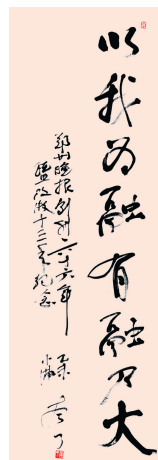 以我为融有融乃大
郑州晚报创刊六十六年
暨改版十三年纪念
乙未